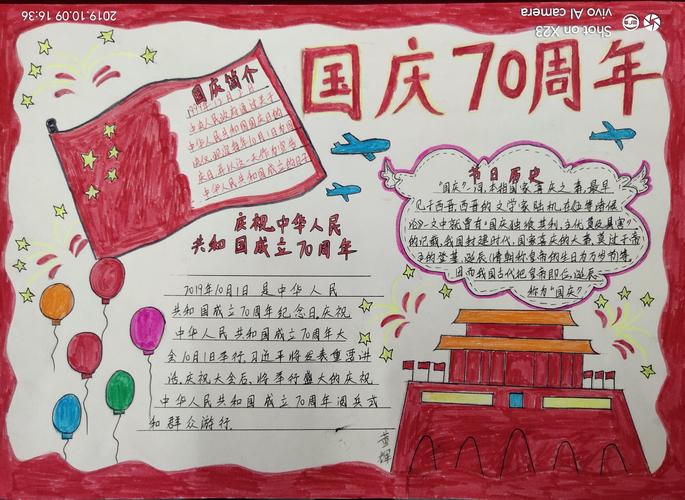 国庆70周年
国庆简介
1949年12月3日
中央人民政府通过关于
中华人民共和国国庆日的
决议,规定每年10月1日为国
庆日,并以这一天作为宣告
中华人民共和国成立的日子
节日历史
“国庆”一词,本指国家喜庆之事,最早
见于西晋,西晋的文学家陆机在《五等诸侯
论》一文中就曾有“国庆独飨其利,主忧莫与其害”
的记载,我国封建时代,国家喜庆的大事,莫过于帝
王的登基、诞辰(清朝称皇帝的生日为万岁节)等,
因而我国古代把皇帝即位、诞辰
称为“国庆”。
庆祝中华人民
共和国成立70周年
2019年10月1日是中华人民
共和国成立70周年纪念日,庆祝
中华人民共和国成立70周年大
会10月1日举行,习近平将发表重要讲
话,庆祝大会后,将举行盛大的庆祝
中华人民共和国成立70周年阅兵式
和群众游行
黄辉
Shot on X23
vivo AI camera
2019.10.09 16:36